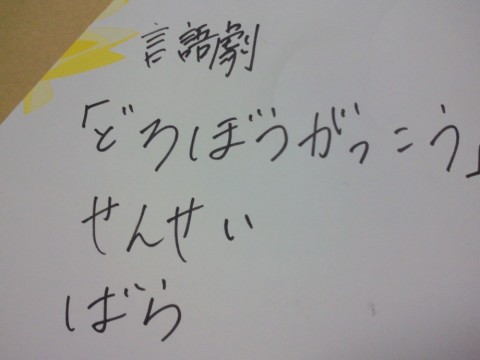 言語劇
「どろぼうがっこう」
せんせい
ばら